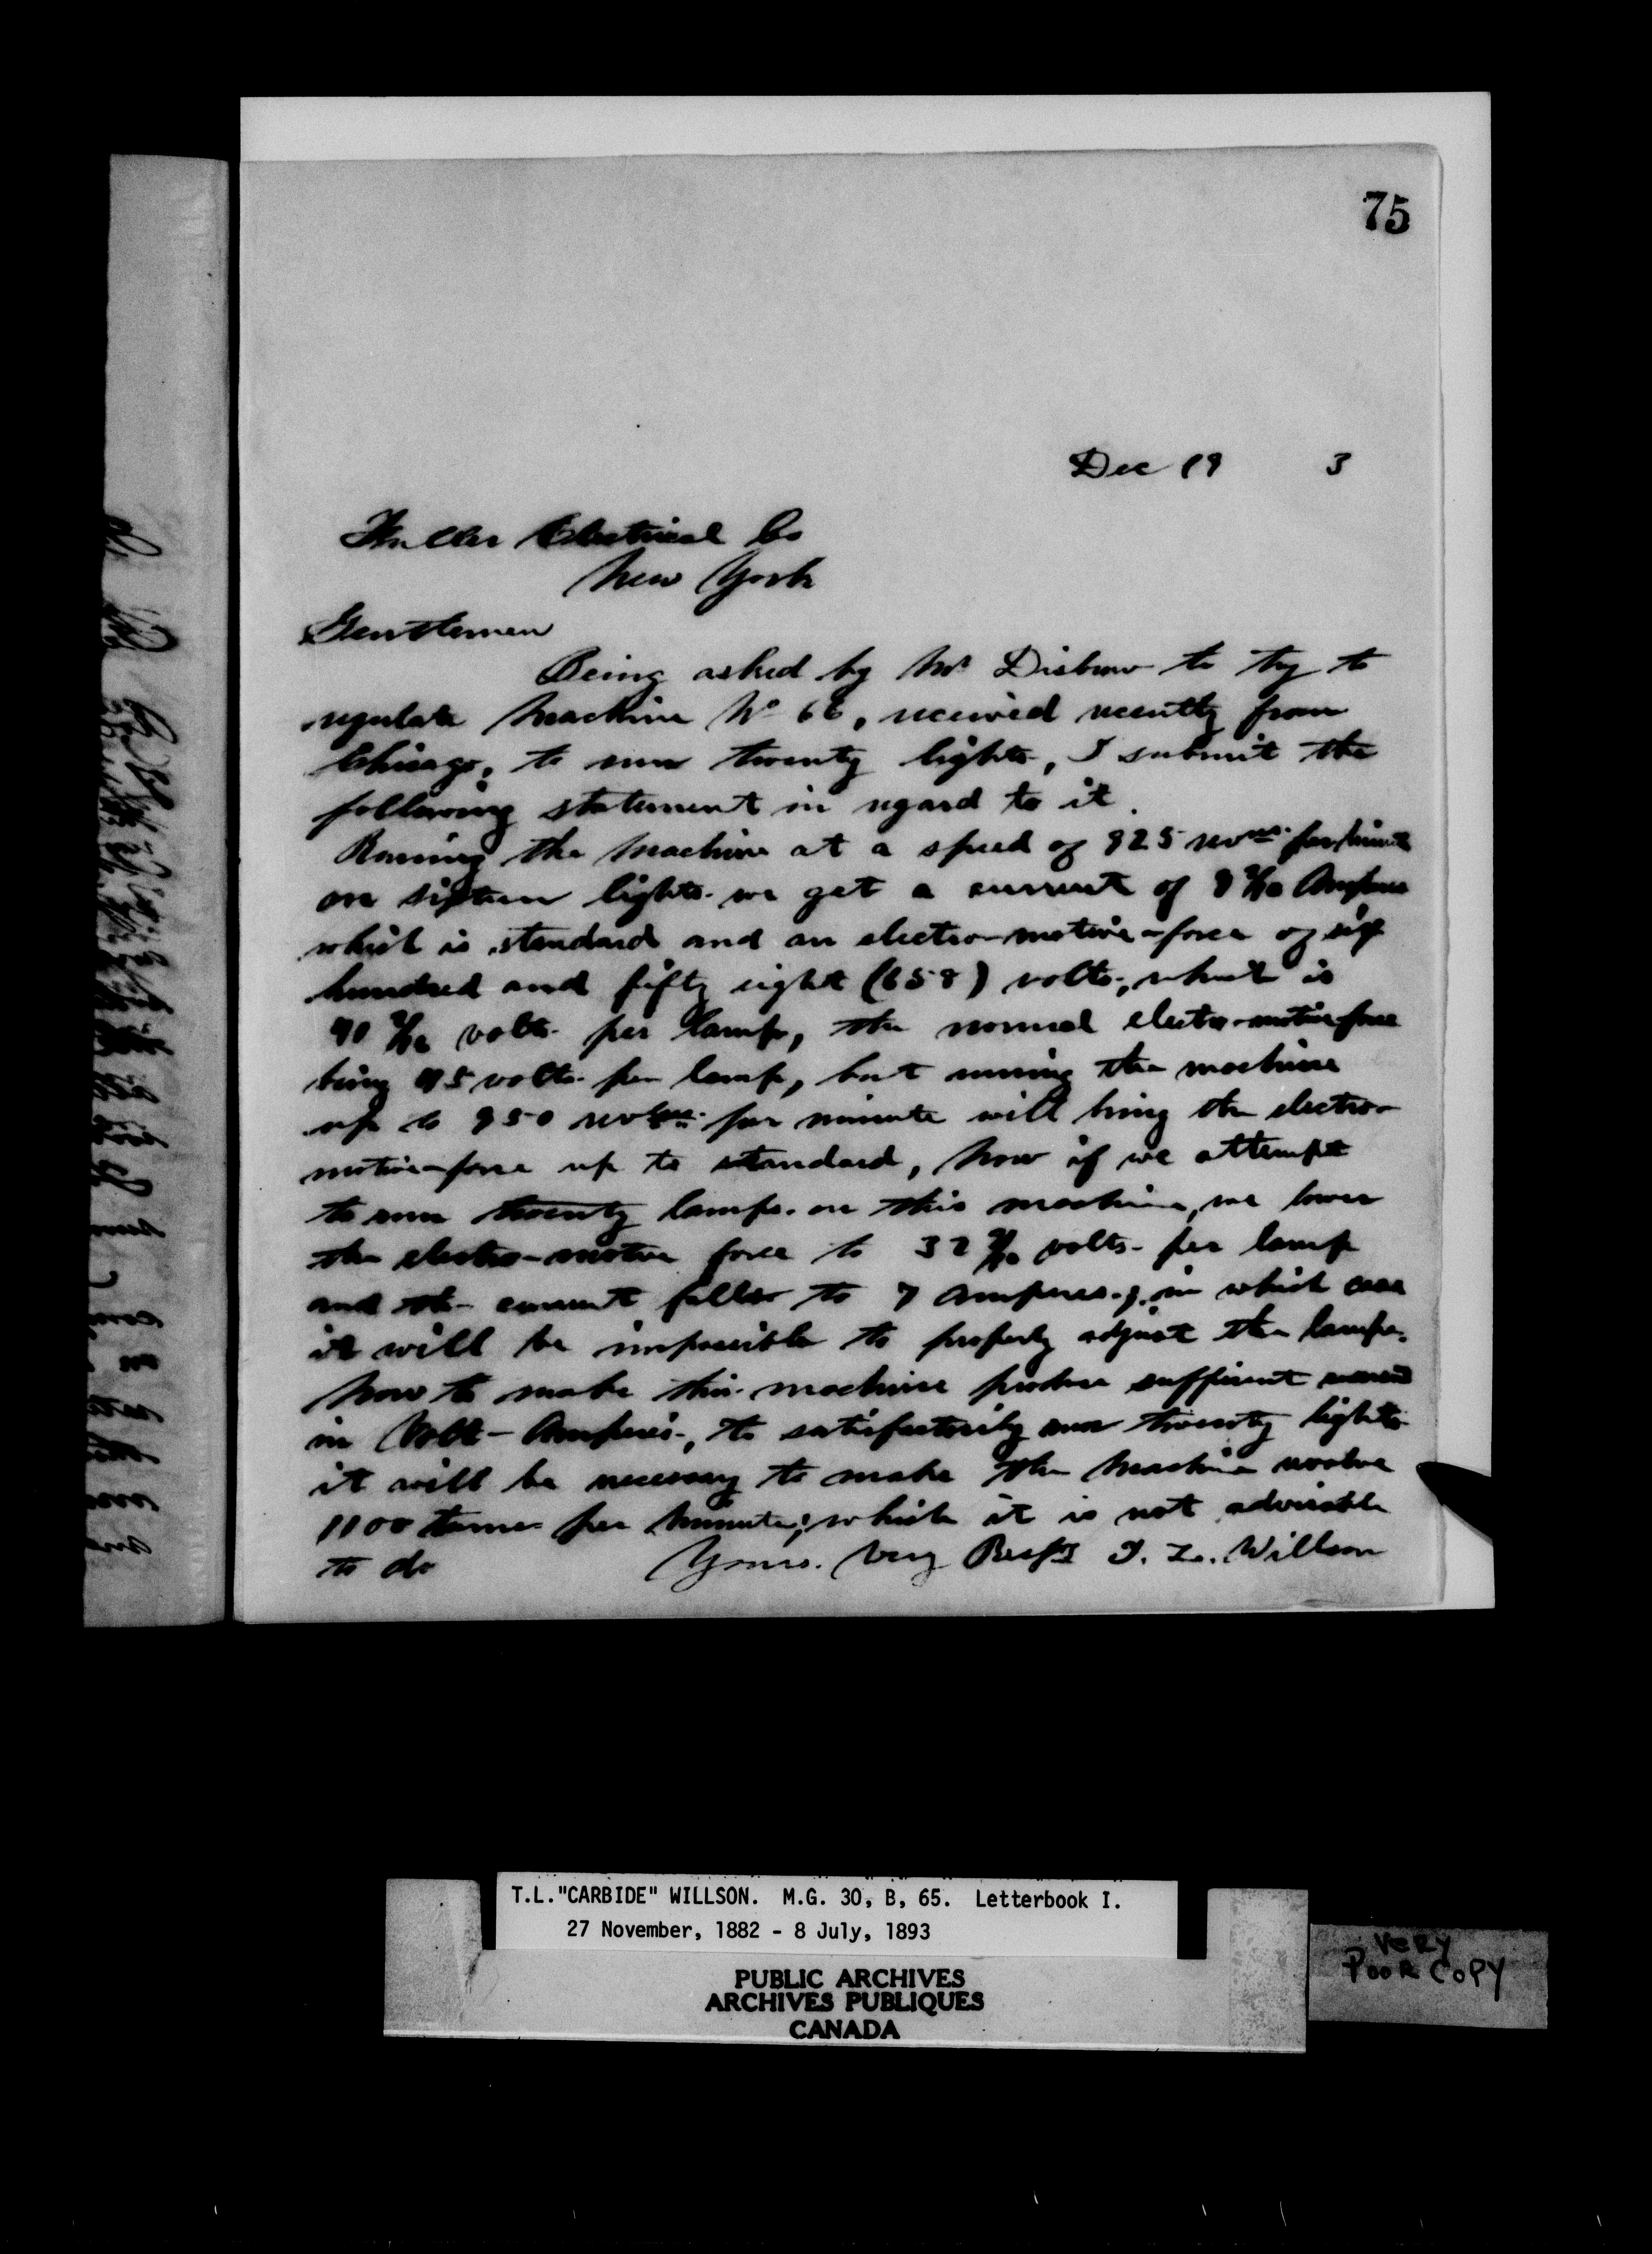 75
Dec 19 3
Fuller Electrical Co
New York
Gentlemen
Being asked by Mr Disbrow to try to
regulate Machine No 66, received recently from
Chicago, to run twenty lights, I submit the
following statement in regard to it.
Running the Machine at a speed of 925 revns. per minute
on sixteen lights. we get a current of Amperes
which is standard and an electro-motive-force of six
hundred and fifty eight (658) volts, which is
volts. per lamp, the normal electro-motive force
being 45 volts. per lamp, but running the machine
up to 950 per minute will bring the electro-
motive-force up to standard, Now if we attempt
to run twenty lamps. on this machine, we lower
the electro-motive force to volts. per lamp
and the current falls to 7 Amperes.; in which case
it will be impossible to properly adjust the lamps.
Now to make this machine produce sufficient current
in Volt-Amperes, to satisfactorily run twenty lights
it will be necessary to make the Machine revolve
1100 times per Minute; which it is not advisable
to do Yours. Very Respt T. L. Willson
T.L."CARBIDE" WILLSON. M.G. 30, B, 65. Letterbook I.
27 November, 1882 - 8 July, 1893
PUBLIC ARCHIVES
ARCHIVES PUBLIQUES
CANADA
VERY
POOR COPY